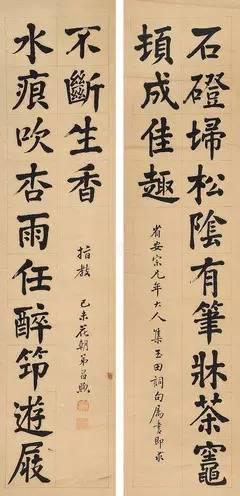 石磴埽松陰有筆牀茶竈
頓成佳趣
省安宗兄年大人 集玉田詞句屬書即求
水痕吹杏雨任醉筇遊屐
不斷生香
指教
己未花朝弟 煦